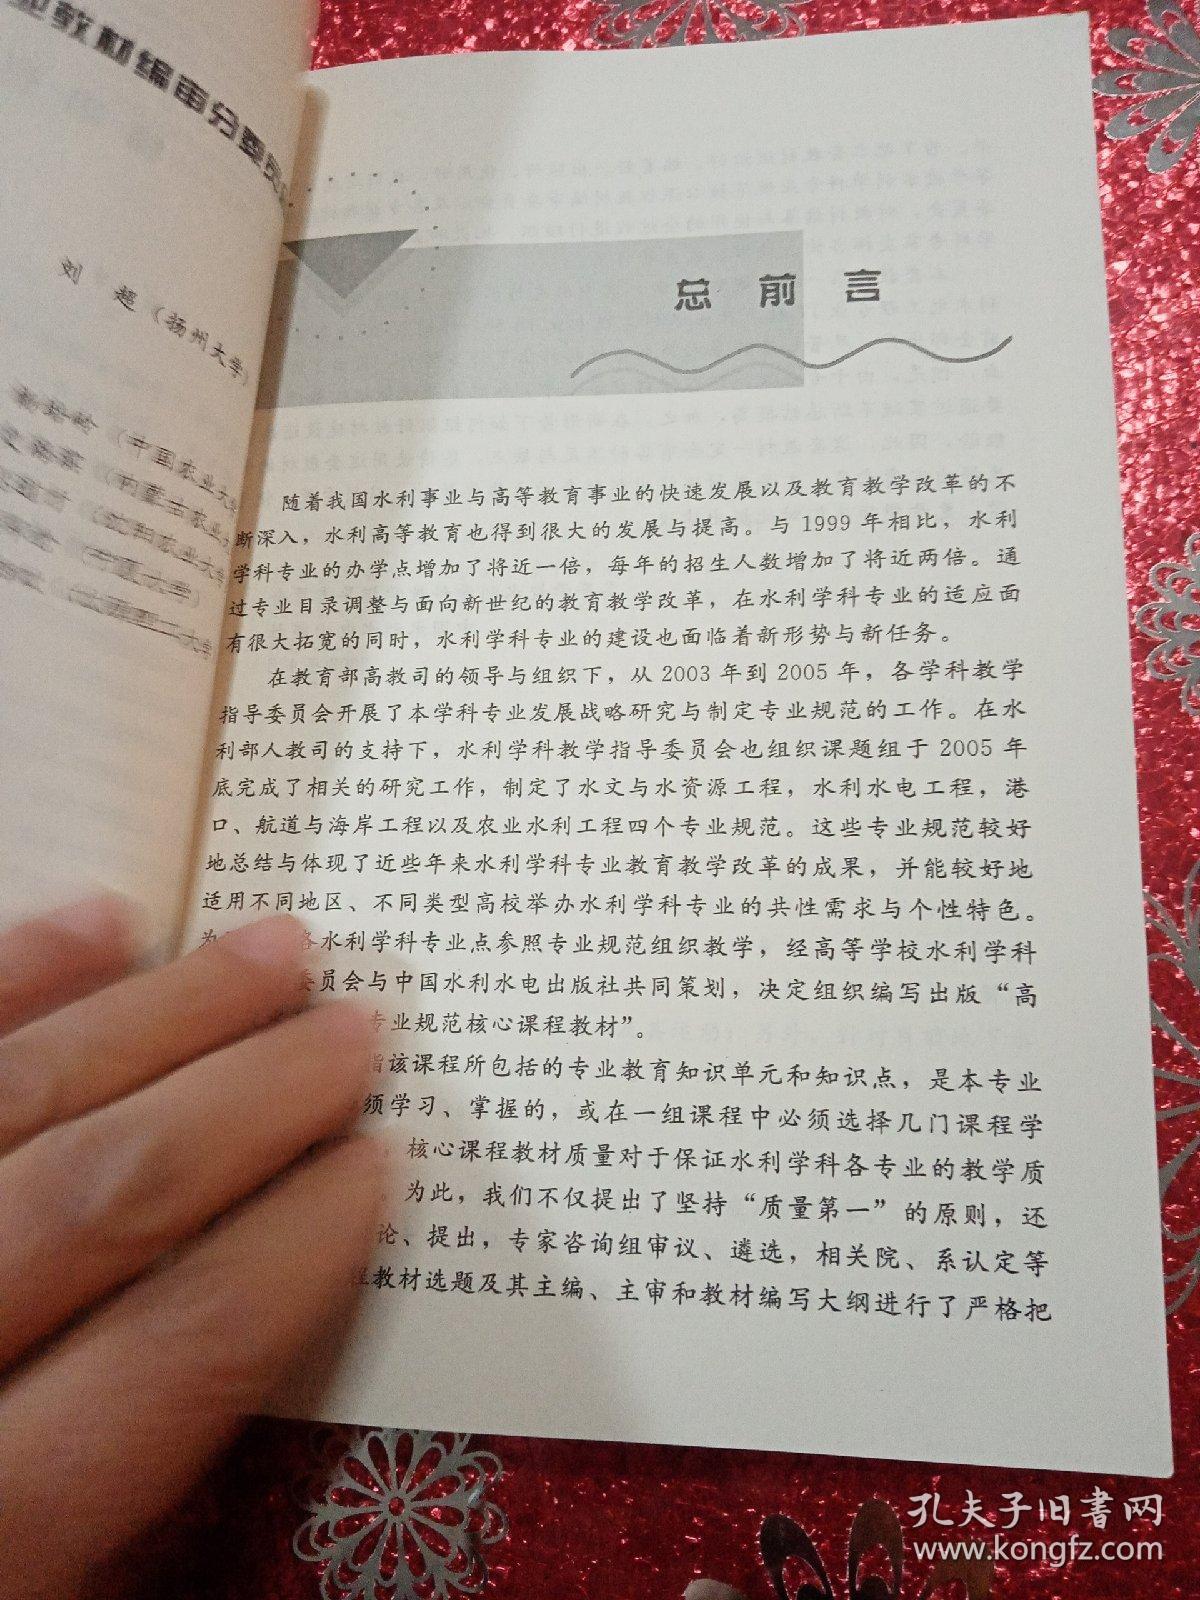 业教材编审分委员
刘 超（扬州大学）
（中国农业大
总前言
随着我国水利事业与高等教育事业的快速发展以及教育教学改革的不
断深入，水利高等教育也得到很大的发展与提高。与 1999 年相比，水利
学科专业的办学点增加了将近一倍，每年的招生人数增加了将近两倍。通
过专业目录调整与面向新世纪的教育教学改革，在水利学科专业的适应面
有很大拓宽的同时，水利学科专业的建设也面临着新形势与新任务。
在教育部高教司的领导与组织下，从 2003 年到 2005 年，各学科教学
指导委员会开展了本学科专业发展战略研究与制定专业规范的工作。在水
利部人教司的支持下，水利学科教学指导委员会也组织课题组于 2005 年
底完成了相关的研究工作，制定了水文与水资源工程，水利水电工程，港
口、航道与海岸工程以及农业水利工程四个专业规范。这些专业规范较好
地总结与体现了近些年来水利学科专业教育教学改革的成果，并能较好地
适用不同地区、不同类型高校举办水利学科专业的共性需求与个性特色。
为 各水利学科专业点参照专业规范组织教学，经高等学校水利学科
委员会与中国水利水电出版社共同策划，决定组织编写出版“高
专业规范核心课程教材”。
指该课程所包括的专业教育知识单元和知识点，是本专业
须学习、掌握的，或在一组课程中必须选择几门课程学
，核心课程教材质量对于保证水利学科各专业的教学质
。为此，我们不仅提出了坚持“质量第一”的原则，还
论、提出，专家咨询组审议、遴选，相关院、系认定等
程教材选题及其主编、主审和教材编写大纲进行了严格把
孔夫子旧书网
www.kongfz.com